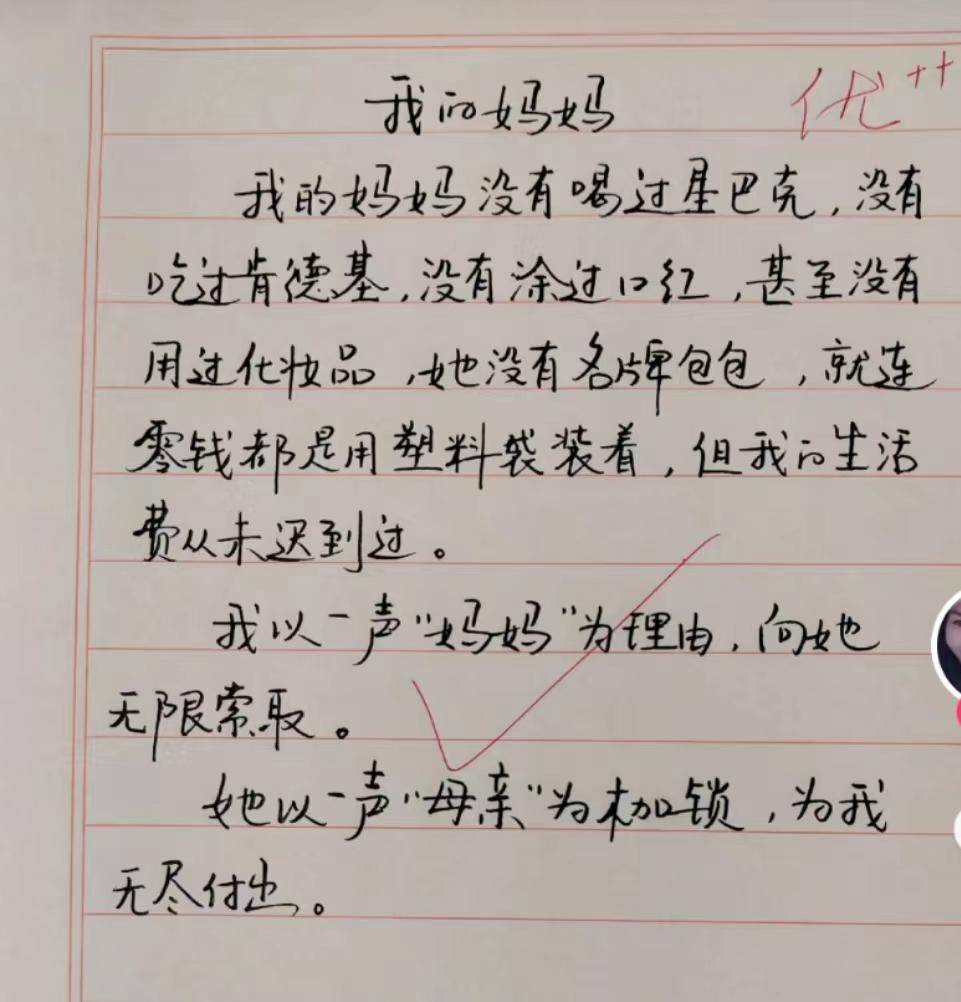 我的妈妈
优++
我的妈妈没有喝过星巴克,没有
吃过肯德基,没有涂过口红,甚至没有
用过化妆品,她没有名牌包包,就连
零钱都是用塑料袋装着,但我的生活
费从未迟到过。
我以一声“妈妈”为理由,向她
无限索取。
她以一声“母亲”为枷锁,为我
无尽付出。